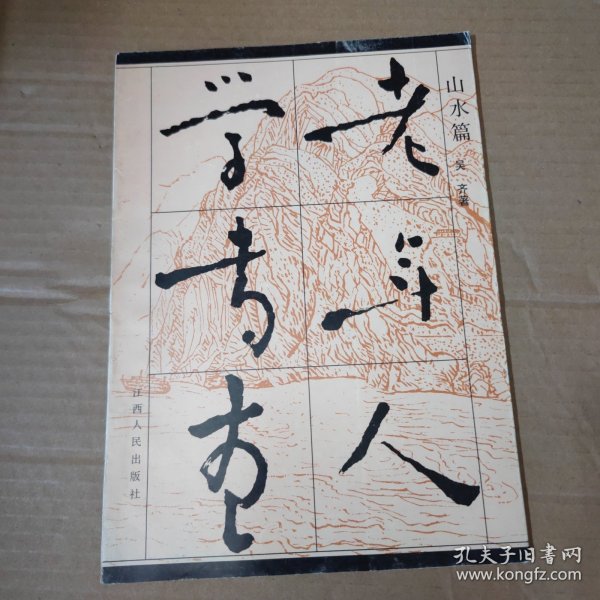 山水篇
吴齐著
老年人
学书画
江西人民出版社
孔夫子旧书网
www.kongfz.com